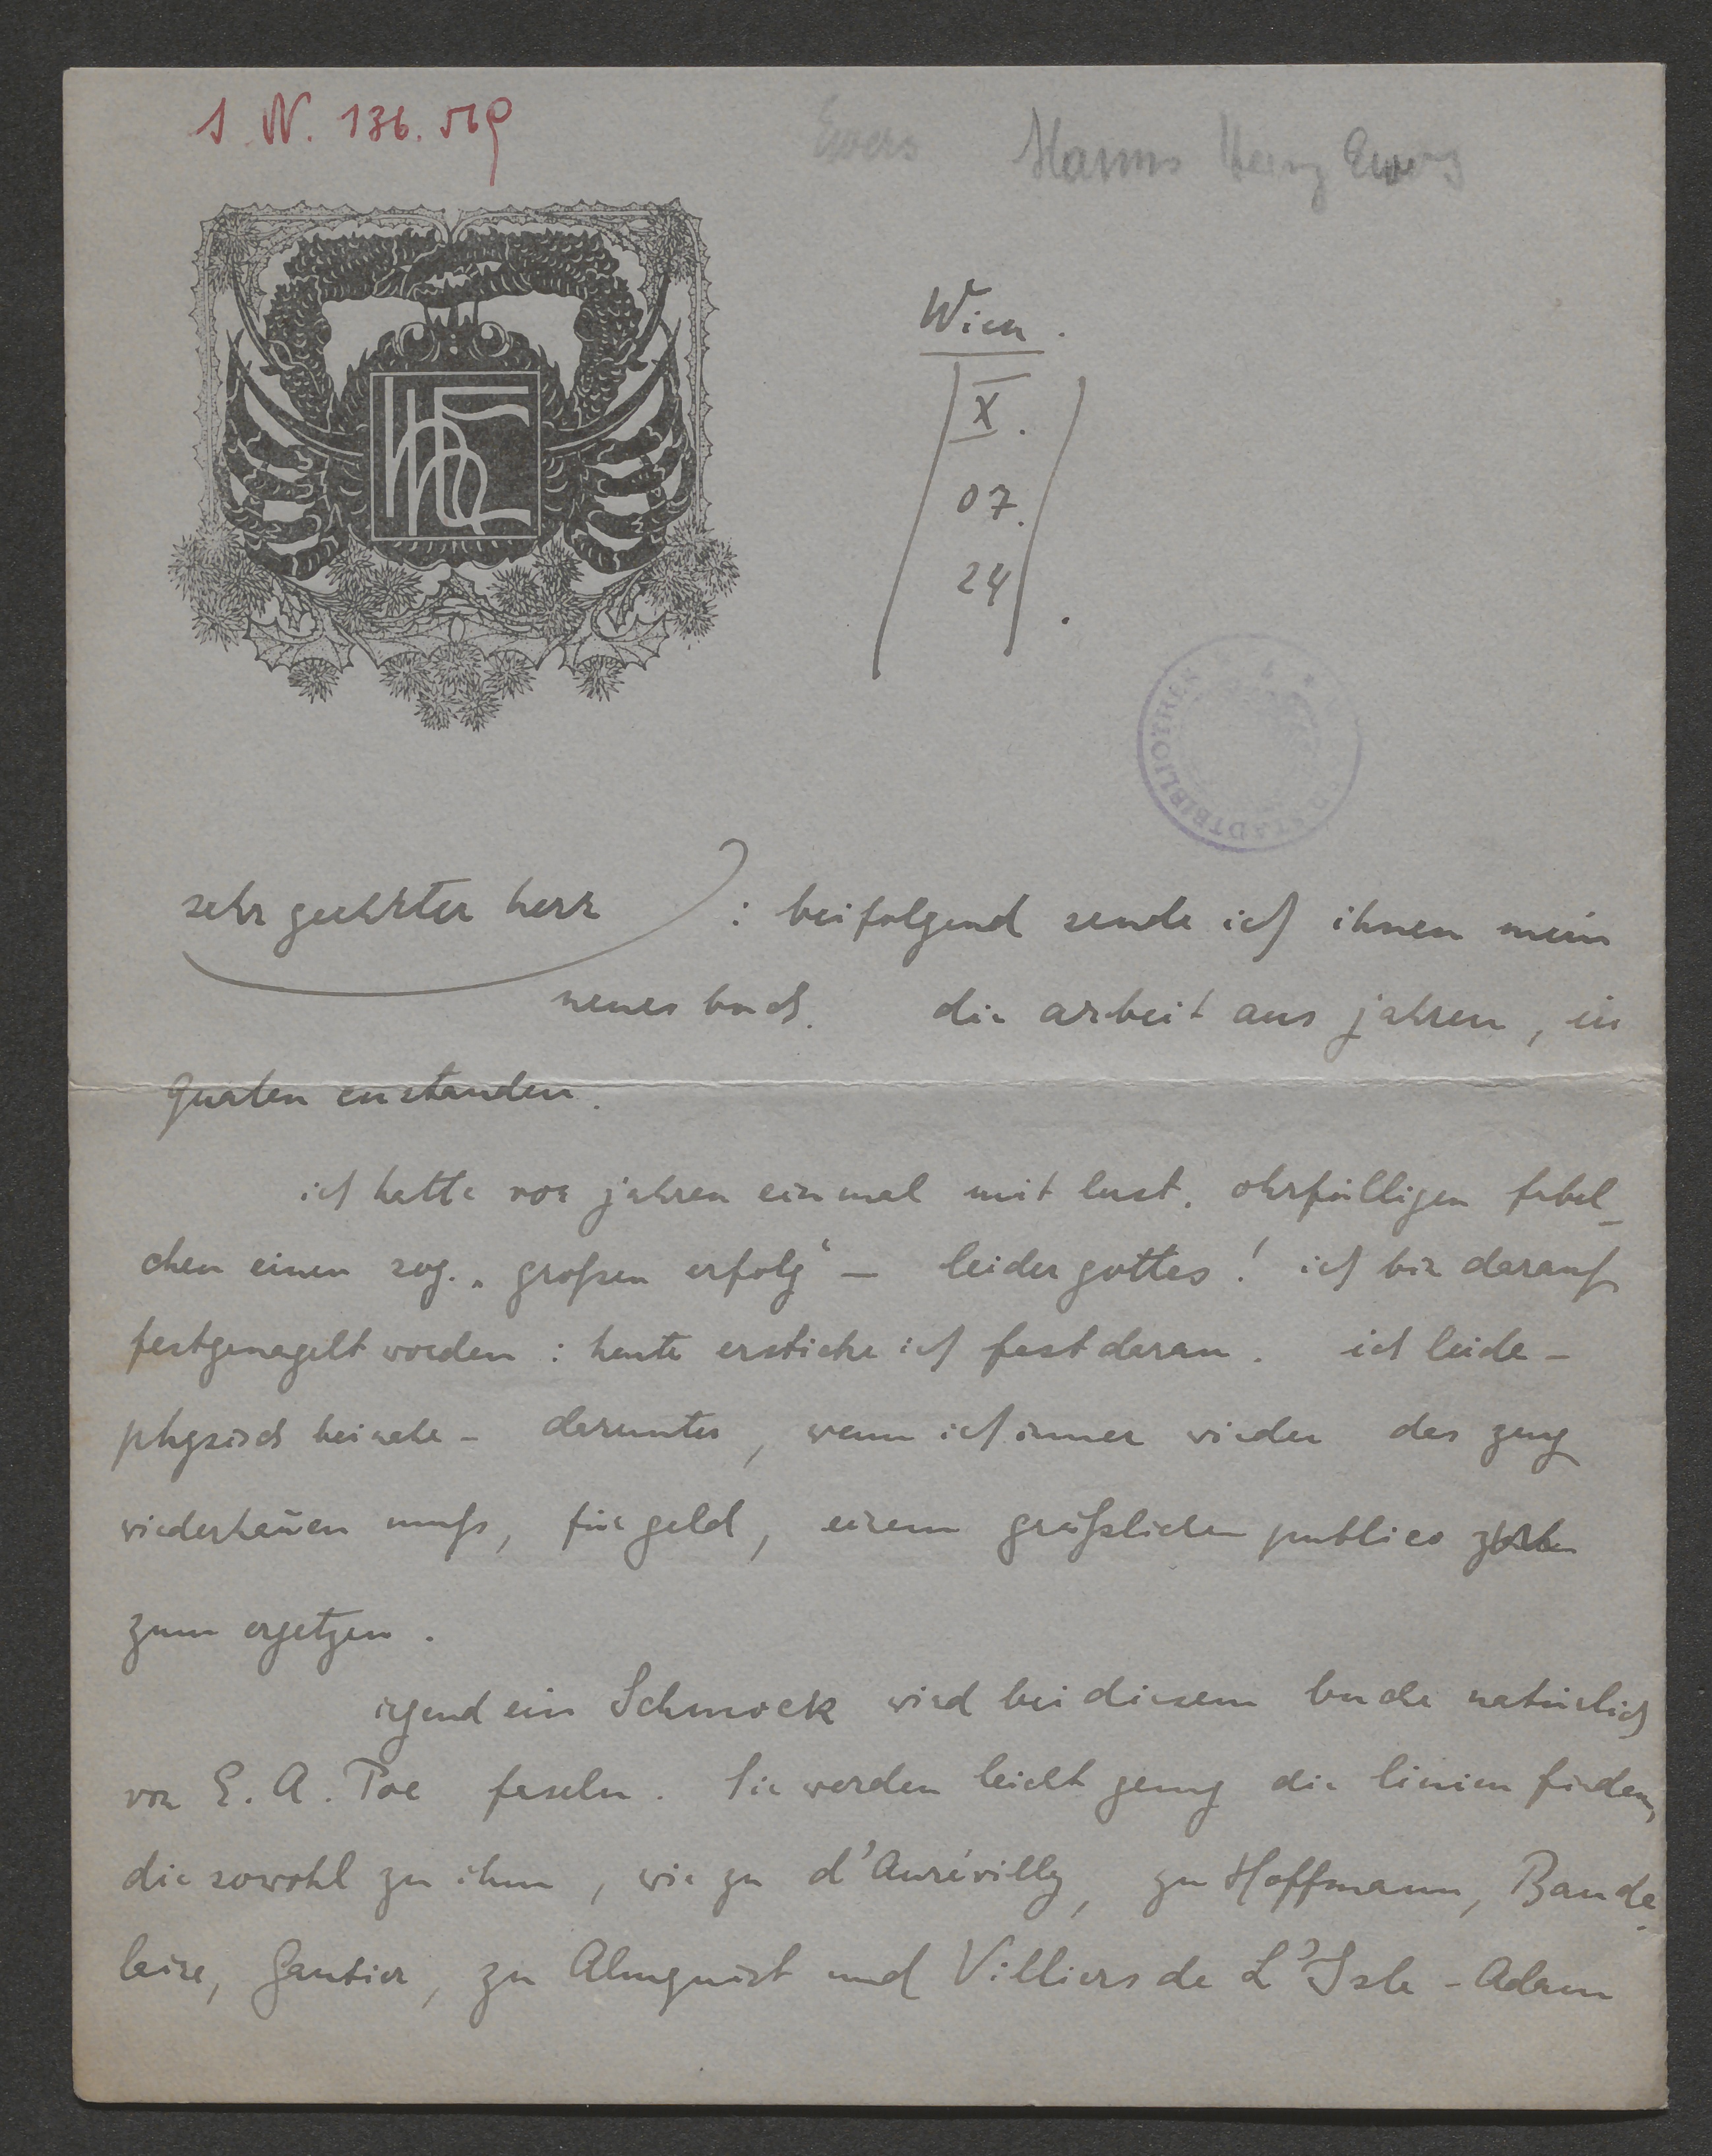 I. N. 136.519
Ewers Hanns Heinz Ewers
Wien.
X.
07.
24.
STADTBIBLIOTHEK
sehr geehrter herr : beifolgend sende ich ihnen mein
neues buch. die arbeit aus jahren, in
qualen enstanden.
ich hatte vor jahren einmal mit lust. ohrfälligen fabel-
chen einen sog. „großen erfolg“ – leider gottes! ich bin darauf
festgenagelt worden : heute ersticke ich fast daran. ich leide –
physisch beinahe – darunter, wenn ich immer wieder das zeug
wiederkäuen muß, für geld, einem gräßlichen publico
zum ergetzen.
irgend ein Schmock wird bei diesem buche natürlich
von E. A. Poe faseln. Sie werden leicht genug die linien finden,
die sowohl zu ihm, wie zu d'Aurévilly, zu Hoffmann, Baude-
laire, Gautier, zu Almquist und Villiers de L'Isle-Adam